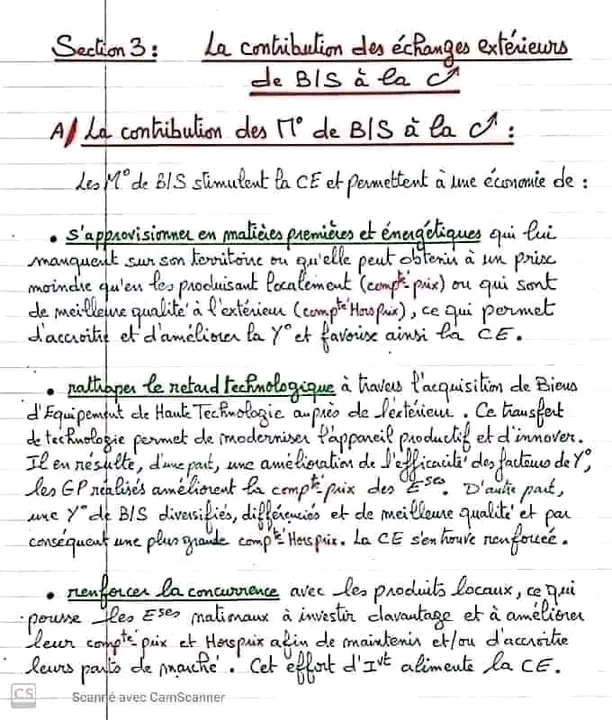 Section 3 : La contribution des échanges extérieurs
de B/S à la C↗
A/ La contribution des M° de B/S à la C↗ :
Les M° de B/S stimulent la CE et permettent à une économie de :
• s'approvisionner en matières premières et énergétiques qui lui
manquent sur son territoire ou qu'elle peut obtenir à un prix
moindre qu'en les produisant localement (compté prix) ou qui sont
de meilleure qualité à l'extérieur (compté Hors prix), ce qui permet
d'accroître et d'améliorer la Y° et favorise ainsi la CE.
• rattraper le retard technologique à travers l'acquisition de Biens
d'Equipement de Haute Technologie auprès de l'extérieur. Ce transfert
de technologie permet de moderniser l'appareil productif et d'innover.
Il en résulte, d'une part, une amélioration de l'efficacité des facteurs de Y°,
les GP réalisés améliorent la compté prix des Eses. D'autre part,
une Y° de B/S diversifiés, différenciés et de meilleure qualité et par
conséquent une plus grande compté Hors prix. La CE s'en trouve renforcée.
• renforcer la concurrence avec les produits locaux, ce qui
pousse les Eses nationaux à investir davantage et à améliorer
leur compté prix et Hors prix afin de maintenir et/ou d'accroître
leurs parts de marché. Cet effort d'Ivt alimente la CE.
CS Scanné avec CamScanner